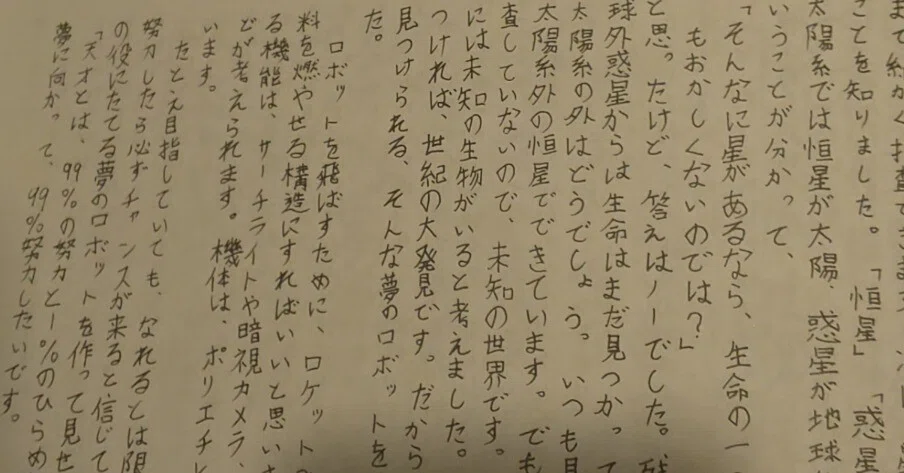 まで細かく
ことを知りました。「恒星」「惑星
太陽系では恒星が太陽、惑星が地球
いうことが分かって、
「そんなに星があるなら、生命の一
もおかしくないのでは？」
と思ったけど、答えはノーでした。
球外惑星からは生命はまだ見つかって
太陽系の外はどうでしょう。いつも見
太陽系外の恒星でできています。でも
査していないので、未知の世界です。
には未知の生物がいると考えました。
つければ、世紀の大発見です。だから
見つけられる、そんな夢のロボットを
た。
ロボットを飛ばすために、ロケットの
料を燃やせる構造にすればいいと思いま
る機能は、サーチライトや暗視カメラ、
どが考えられます。機体は、ポリエチレ
います。
たとえ目指していても、なれるとは限
努力したら必ずチャンスが来ると信じて
の役にたてる夢のロボットを作って見せ
「天才とは、99%の努力と1%のひらめ
夢に向かって、99%努力したいです。